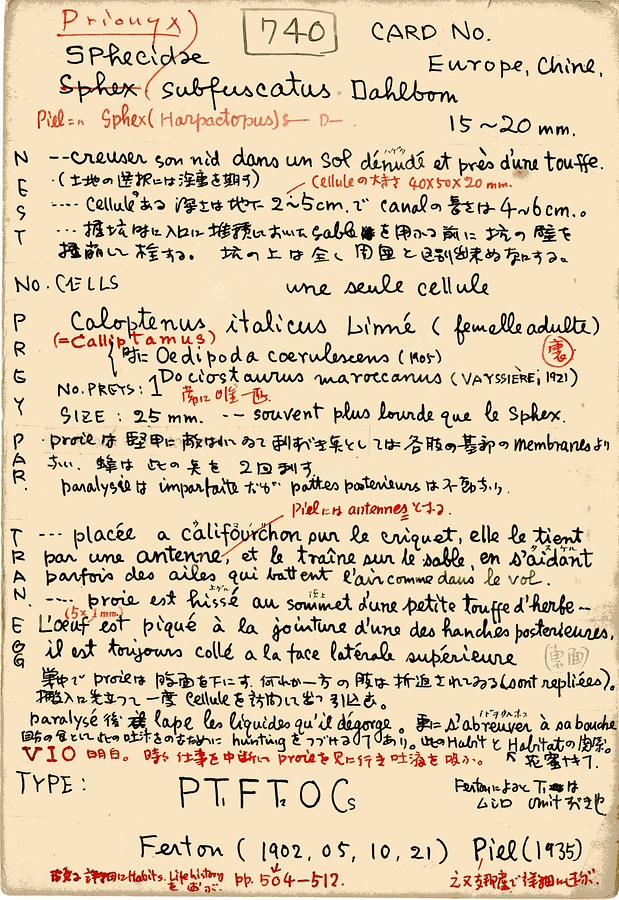 Prionyx)
740 CARD No.
Sphecidae
Europe, Chine,
Sphex (subfuscatus Dahlbom
Piel = Sphex (Harpactopus) s— D—.
15～20 mm.
NEST
--creuser son nid dans un sol dénudé et près d'une touffe.
・(土地の選択には深重を期す)
Celluleの大きさ 40×50×20 mm.
---- Celluleある 深さは地下 2～5cm.で canalの長さは4～6cm.。
--- 掘坑時に入口に堆積しておいたsableを用ふる前に 坑の壁を
崩して 栓する。 坑の上は全く周囲と区別出来ぬ
No. CELLS une seule cellule
PREY
Caloptenus italicus Linné ( femelle adulte)
(=Calliptamus)
時に Oedipoda coerulescens (1905)
裏
Dociostaurus maroccanus (VAYSSIÈRE, 1921)
No. PREYS: 1 常に唯一匹.
SIZE : 25 mm. -- souvent plus lourde que le Sphex.
PAR.
・proieは 堅甲に 各肢の基部のmembranesより
蜂は此の 2回刺す
paralysieは imparfaiteだが pattes posterieursは
Pielには antennesとする.
TRAN.
--- placée a califourchon sur le criquet, elle le tient
par une antenne, et le traîne sur le sable, en s'aidant
parfois des ailes qui battent l'air comme dans le vol.
---- proie est hissé au sommet d'une petite touffe d'herbe --
(5×1mm.)
EGG
L'oeuf est piqué à la jointure d'une des hanches posterieures,
il est toujours collé a la face latérale supérieure
(裏面)
巣中でproieは腹面を下にす. 何れか一方の肢は折返されてゐる(sont repliées)。
搬入に先立つて一度 Celluleを訪問して出て引込む。
paralysé 後 lape les liquides qu'il dégorge. 更に s'abreuver à sa bouche
自分の食として此の吐汁をのむために huntingをつづける あり。此のHabitとHabitatの関係。
VIO 明白。 時々仕事を中断して proieを見に行き吐液を吸ふ。 花蜜
TYPE: PT₁FT₂OCs
Fertonによると T₁は
omitすべき也
Ferton ( 1902, 05, 10, 21) Piel (1935)
詳細にHabits. Life history pp. 504—512.
を述ぶ.